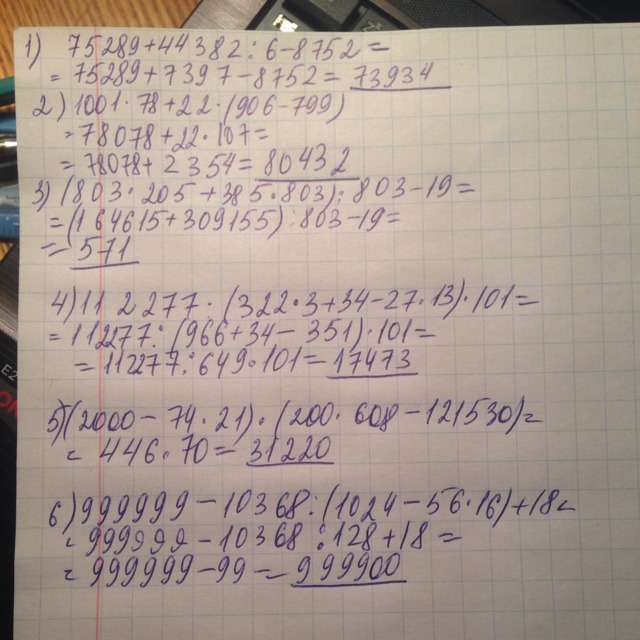 1) 75289+44382:6-8752=
= 75289+7397-8752=73934
2) 1001·78+22·(906-799)
=78078+22·107=
=78078+2354=80432
3) (803·205+385·803):803-19=
=(164615+309155):803-19=
= 571
4) 112277:(322·3+34-27·13)·101=
= 11277:(966+34-351)·101=
= 11277:649·101=17473
5) (2000-74·21)·(200·608-121530)=
= 446·70=31220
6) 999999-10368:(1024-56·16)+18=
= 999999-10368:128+18=
= 999999-99=999900